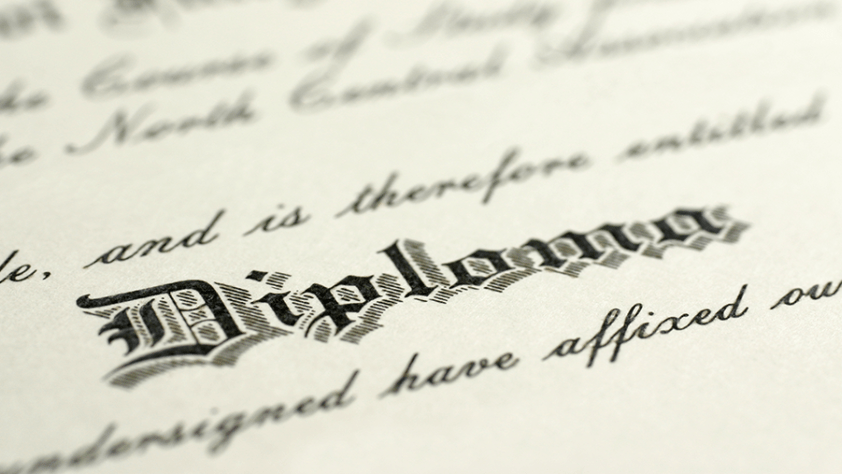 the Course of Study
the North Central Association
le, and is therefore entitled
Diploma
undersigned have affixed our